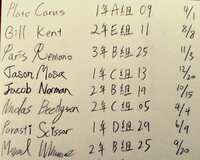 Plato Caras 1年A組 09 4/1
Bill Kent 2年E組 11 8/8
Paris Romano 3年B組 25 11/5
Jason Mosa 1年C組 13 12/20
Jocob Norman 2年B組 19 10/15
Nicolas Beellyson 2年C組 05 4/4
Parasti Seissor 1年D組 29 6/9
2年B組 25 9/20